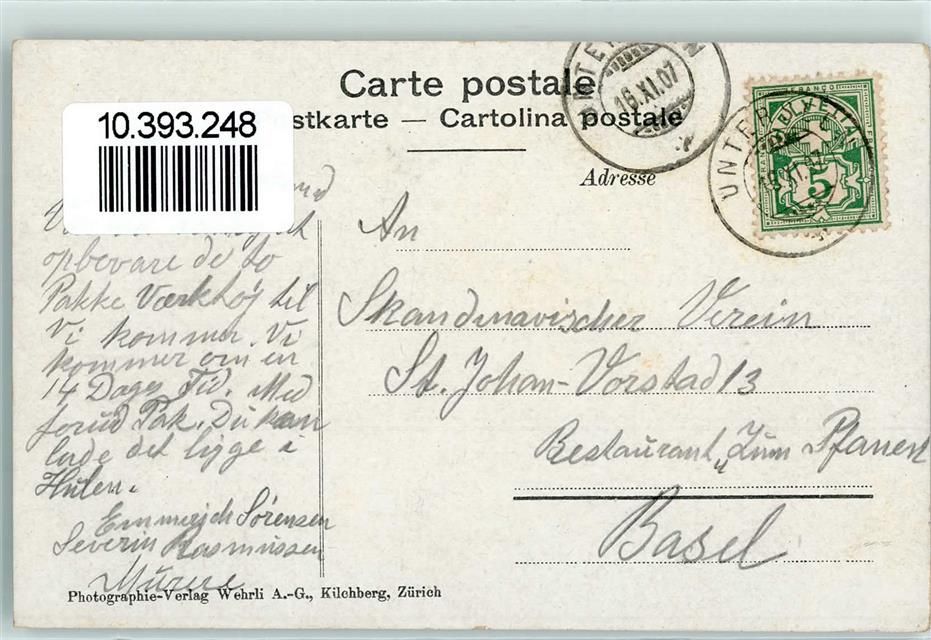 Carte postale
stkarte — Cartolina postale
10.393.248
16.XI.07
UNTER
HELVETIA
FRANCO
5
Adresse
opbevare de to
Pakke Værktøj til
Vi kommer. Vi
kommer om en
14 Dages Tid. Med
forud Tak. Du kan
lade det ligge i
Hulen.
Emmerich Sørensen
Severin Rasmussen
Murere
An
Skandinavischer Verein
St. Johan-Vorstad 13
Restaurant „Zum Pfanen
Basel
Photographie-Verlag Wehrli A.-G., Kilchberg, Zürich